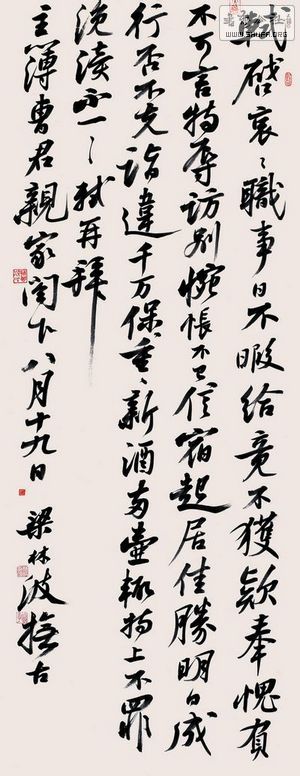 軾啓衮〻職事日不暇給竟不獲欵奉愧負
不可言特辱訪別惋悵不已信宿起居佳勝明日成
行否不克詣違千万保重〻新酒两壺輒持上不罪
浼瀆不一〻軾再拜
主簿曹君親家閣下八月十九日 梁林波撫古
WWW.SHUFA.ORG